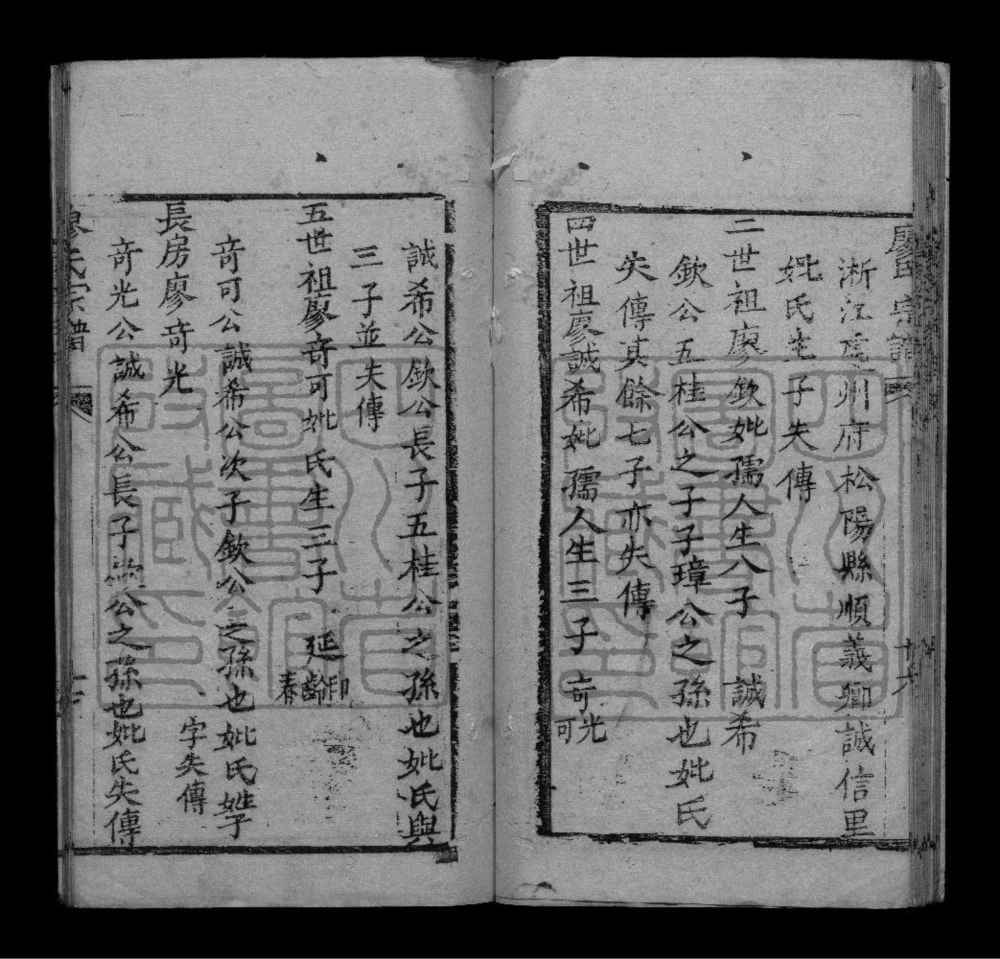 廖氏宗譜
十六
浙江處州府松陽縣順義鄉誠信里
妣氏生子失傳
三世祖廖欽妣孺人生八子 誠希
欽公五桂公之子子璋公之孫也妣氏
失傳其餘七子亦失傳
四世祖廖誠希妣孺人生三子 奇光
可
誠希公欽公長子五桂公之孫也妣氏與
三子並失傳
五世祖廖奇可妣氏生三子 延 印
齡
春
奇可公誠希公次子欽公之孫也妣氏姓子
字失傳
長房廖奇光
奇光公誠希公長子欽公之孫也妣氏失傳
廖氏宗譜
四川省
圖書館
藏
印